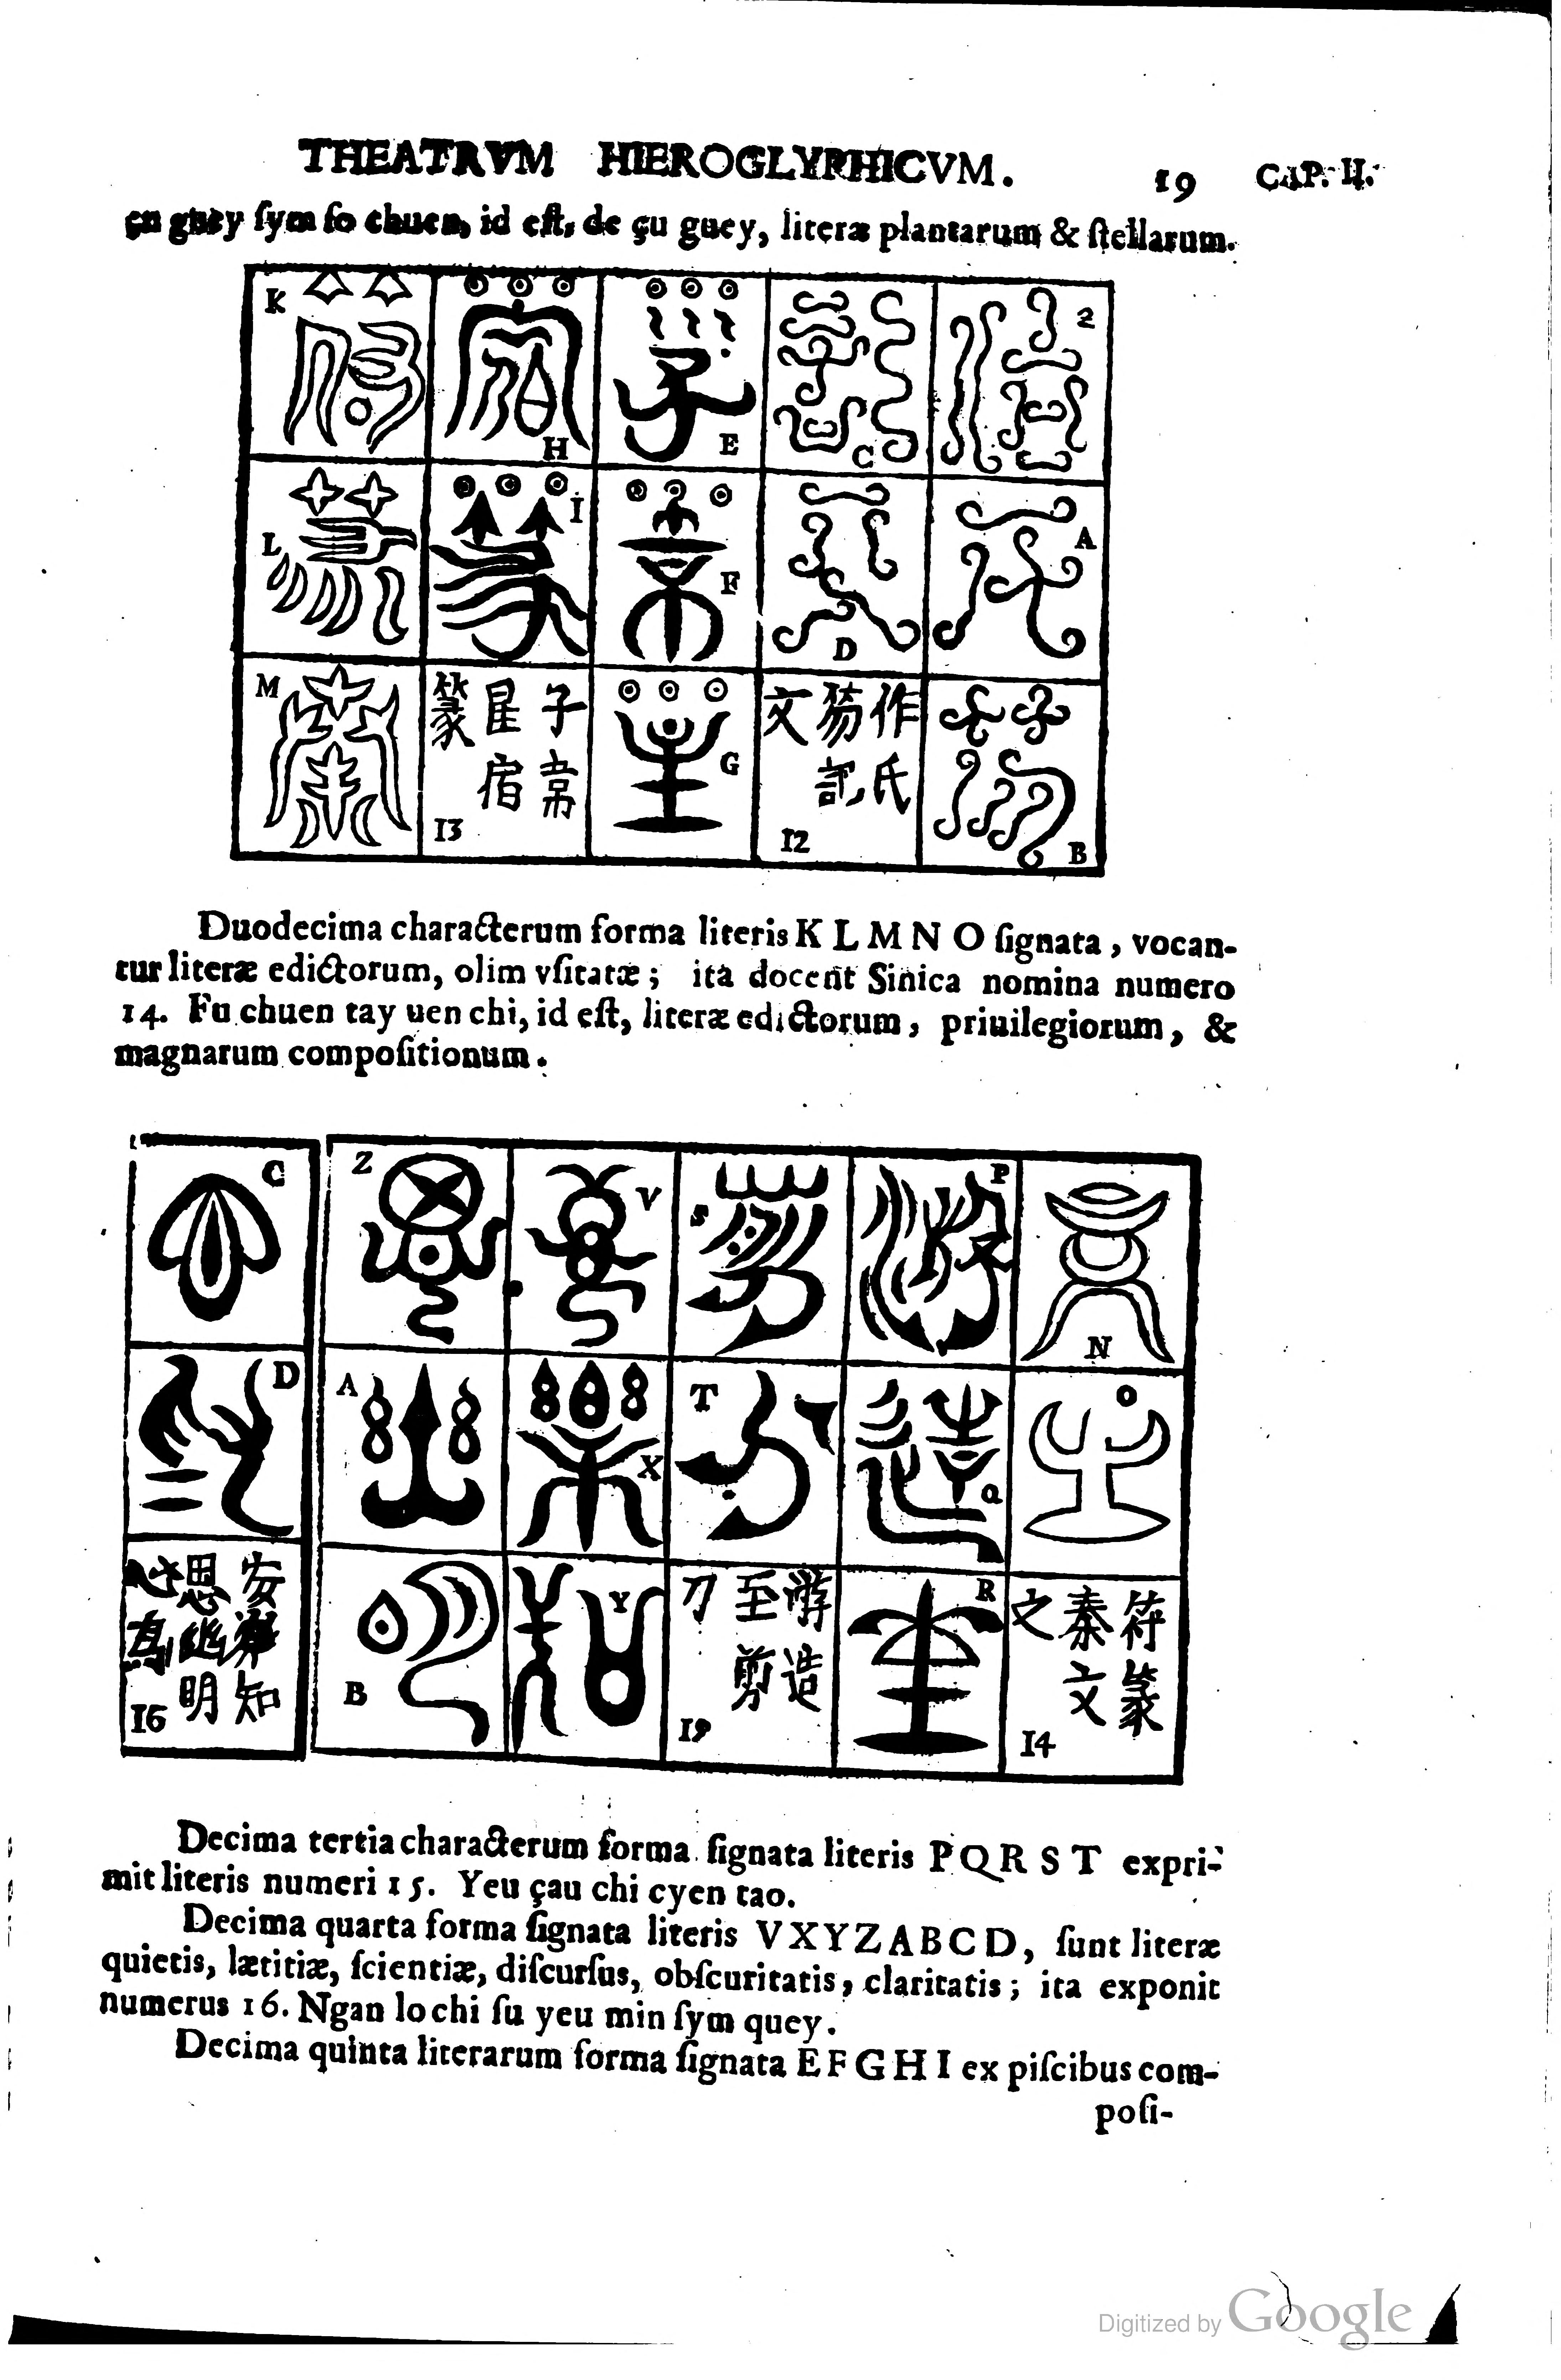 THEATRVM HIEROGLYPHICVM. 19 CAP. II.
çu guey ſym ſo chuen, id eſt, de çu guey, literæ plantarum & ſtellarum.
K H E C 2
L I F D A
M G B
篆 星宿 子韋 13
文 易記 作氏 12
Duodecima characterum forma literis K L M N O ſignata, vocan-
tur literæ edictorum, olim vſitatæ; ita docent Sinica nomina numero
14. Fu chuen tay uen chi, id eſt, literæ edictorum, priuilegiorum, &
magnarum compoſitionum.
C Z V S P N
D A X T Q O
B Y R
思幽明 安知 16
刀 至剪 造 19
之 秦文 符篆 14
Decima tertia characterum forma ſignata literis P Q R S T expri-
mit literis numeri 15. Yeu çau chi cyen tao.
Decima quarta forma ſignata literis V X Y Z A B C D, ſunt literæ
quietis, lætitiæ, ſcientiæ, diſcurſus, obſcuritatis, claritatis; ita exponit
numerus 16. Ngan lo chi ſu yeu min ſym quey.
Decima quinta literarum forma ſignata E F G H I ex piſcibus com-
poſi-
Digitized by Google